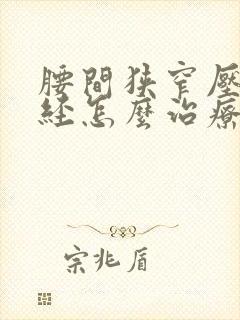 腰間狹窄壓
經怎麼治療
宗兆盾